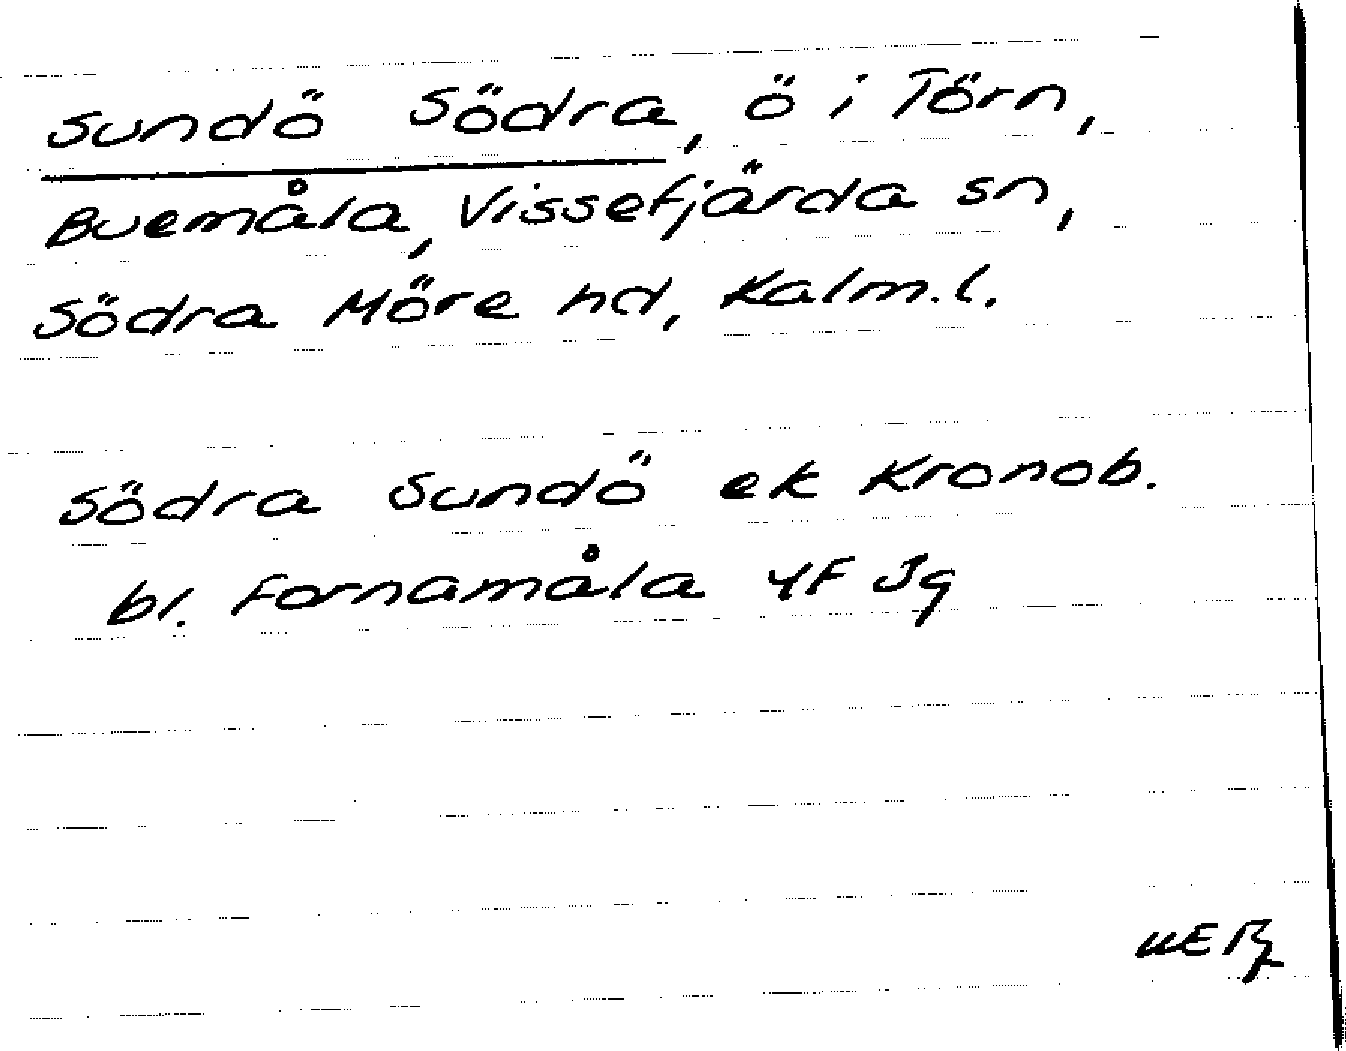 Sundö Södra, ö i Törn,
Buemåla, Vissefjärda sn,
Södra Möre hd, Kalm.l.
Södra Sundö ek Kronob.
bl. Fornamåla 4F Jg